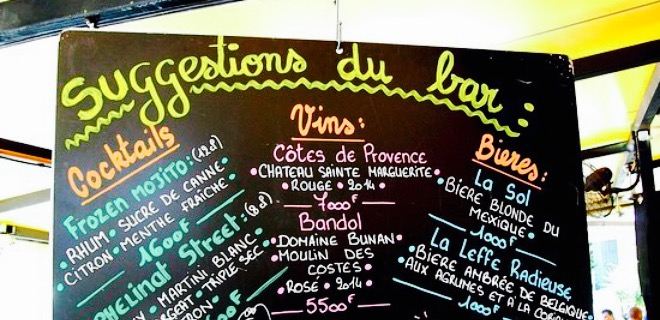 Suggestions du bar :
Cocktails
Frozen Mojito : (12.8)
• Rhum • Sucre de canne
• Citron • Menthe fraîche •
1600F
Street : (8.8)
• Martini Blanc
• Triple Sec
Vins :
Côtes de Provence
• Chateau Sainte Marguerite •
• Rouge • 2014 •
7000F
Bandol
• Domaine Bunan •
• Moulin des
Costes •
• Rosé • 2014 •
5500F
Bieres :
La Sol
• Bière blonde du
Mexique •
1000F
La Leffe Radieuse
• Bière ambrée de Belgique
aux agrumes et à la